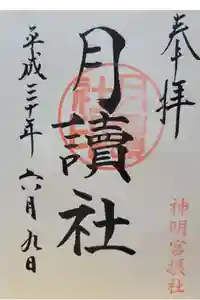 奉拝
月讀社
平成三十年六月九日
神明宮摂社